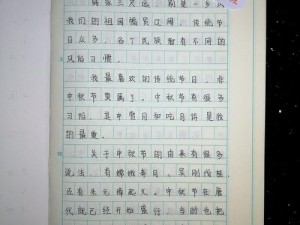 我们的祖国幅员辽阔，传统节
日众多，各个民族都有不同的
风俗习惯。
我最喜欢的传统节日，非
中秋节莫属了。中秋节有很多
习俗，其中赏月和吃月饼是我
的最爱。
关于中秋节的由来有很多
说法，有嫦娥奔月、吴刚伐桂，
还有朱元璋起义。中秋节在唐
代就已经开始盛行，当时也把